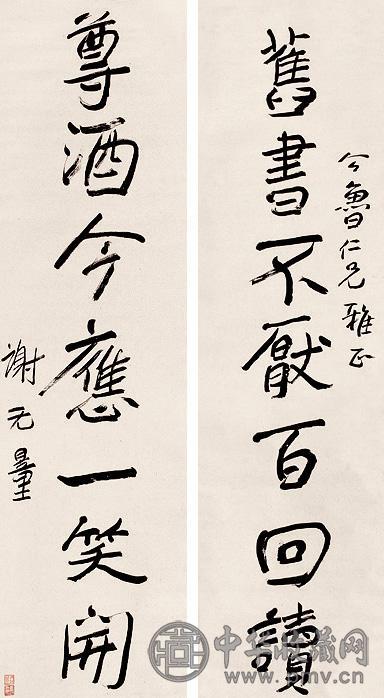 今魯仁兄雅正
舊書不厭百回讀
尊酒今應一笑開
謝无量
中华收藏网
www.pmv.cn